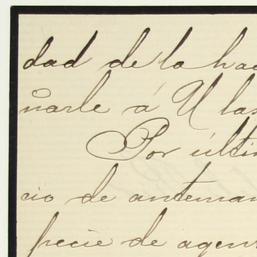 dad de la hac
ñarle á U las
Por últim
rio de anteman
pecie de agen